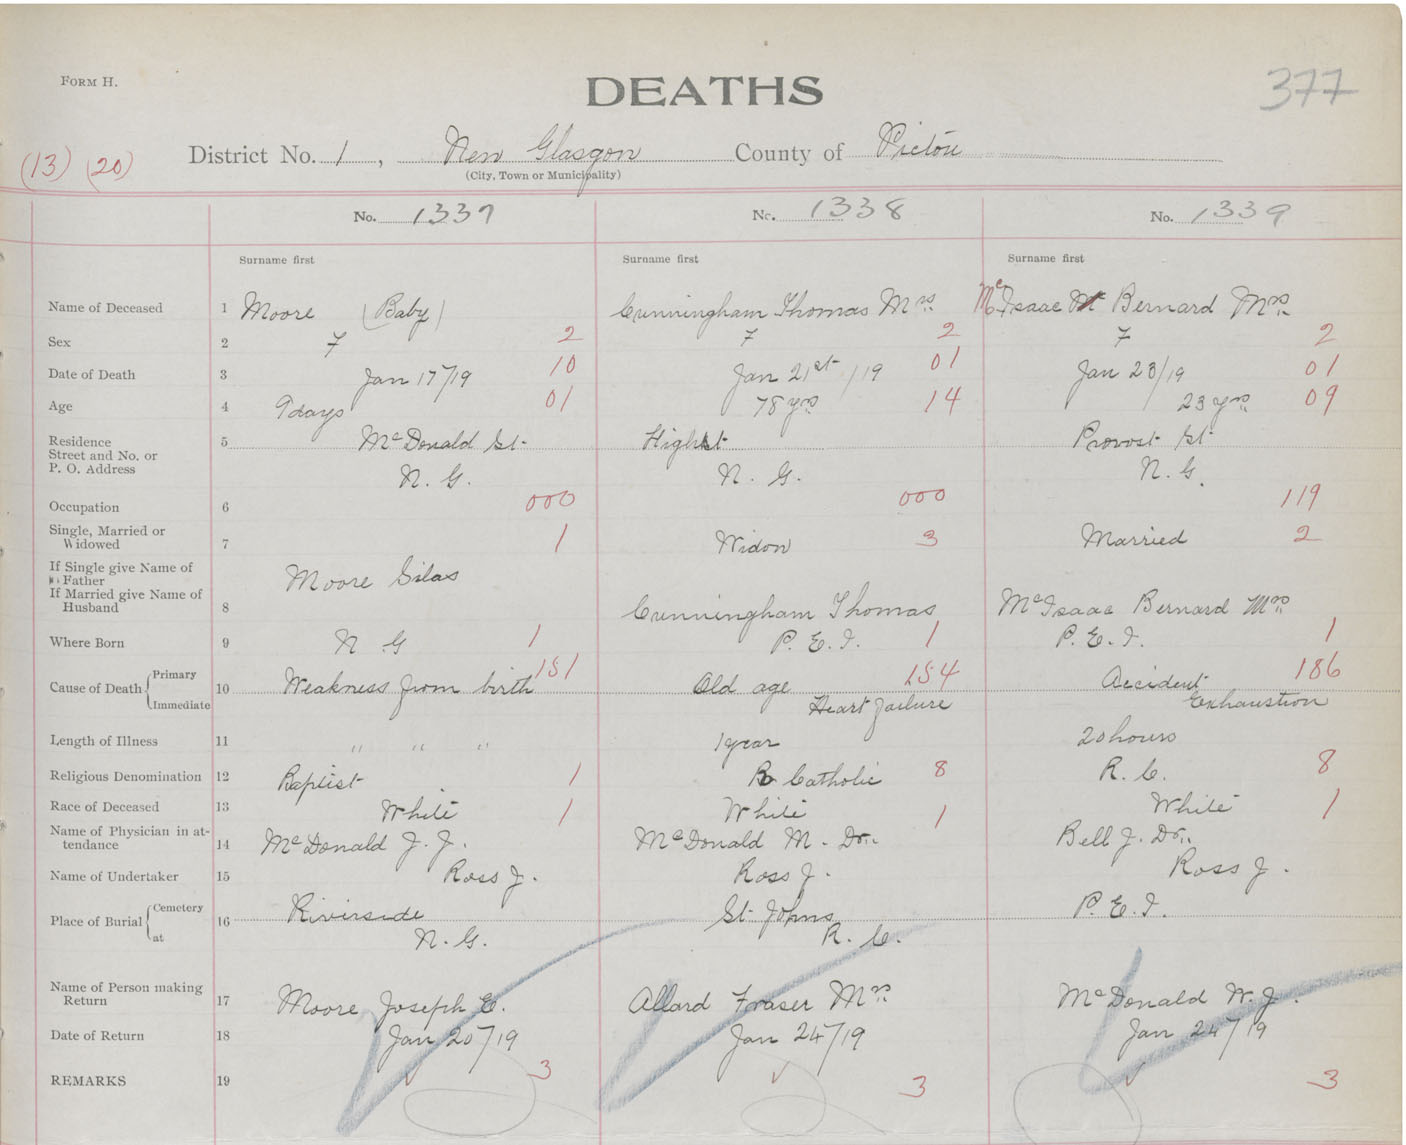 FORM H.
DEATHS
377
(13) (20)
District No. 1, New Glasgow County of Pictou
(City, Town or Municipality)
No. 1337 No. 1338 No. 1339
Surname first Surname first Surname first
Name of Deceased 1 Moore (Baby) Cunningham Thomas Mrs McIsaac Bernard Mrs
Sex 2 F 2 F 2 F 2
Date of Death 3 Jan 17/19 10 Jan 21st/19 01 Jan 23/19 01
Age 4 9 days 01 78 yrs 14 23 yrs 09
Residence
Street and No. or
P. O. Address
5 McDonald St High st Provost St
N. G. N. G. N. G.
Occupation 6 000 000 119
Single, Married or
Widowed 7 1 Widow 3 Married 2
If Single give Name of
Father Moore Silas
If Married give Name of
Husband 8 Cunningham Thomas McIsaac Bernard Mrs
Where Born 9 N. G 1 P. E. I. 1 P. E. I. 1
Cause of Death Primary 10 Weakness from birth 151 Old age 154 Accident 186
Immediate Heart failure Exhaustion
Length of Illness 11 " " " 1 year 20 hours
Religious Denomination 12 Baptist 1 R Catholic 8 R. C. 8
Race of Deceased 13 White 1 White 1 White 1
Name of Physician in at-
tendance 14 McDonald J. J. McDonald M. Dr. Bell J. Dr.
Name of Undertaker 15 Ross J. Ross J. Ross J.
Place of Burial Cemetery 16 Riverside St Johns P. E. I.
at N. G. R. C.
Name of Person making
Return 17 Moore Joseph E. Allard Fraser Mrs McDonald W. J.
Date of Return 18 Jan 20/19 Jan 24/19 Jan 24/19
REMARKS 19 3 3 3